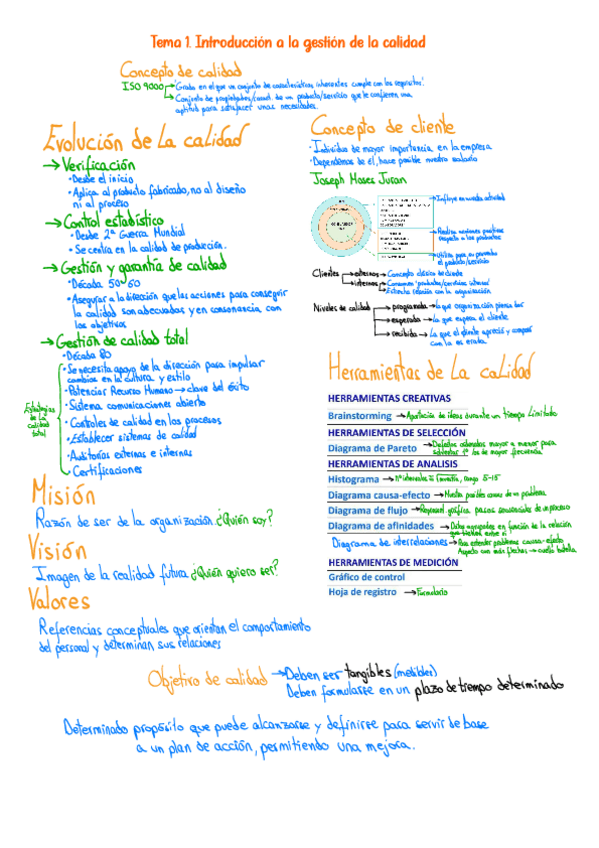 Tema 1. Introducción a la gestión de la calidad
Concepto de calidad
ISO 9000 → "Grado en el que un conjunto de características inherentes cumple con los requisitos".
→ Conjunto de propiedades/caract. de un producto/servicio que le confieren una
aptitud para satisfacer unas necesidades.
Evolución de la calidad
→ Verificación
• Desde el inicio
• Aplica al producto fabricado, no al diseño
ni al proceso
→ Control estadístico
• Desde 2ª Guerra Mundial
• Se centra en la calidad de producción.
→ Gestión y garantía de calidad
• Década 50-60
• Asegurar a la dirección que las acciones para conseguir
la calidad son adecuadas y en consonancia con
los objetivos
→ Gestión de calidad total
• Década 80
Estrategias de la calidad total
• Se necesita apoyo de la dirección para impulsar
cambios en la cultura y estilo
• Potenciar Recurso Humano → clave del éxito
• Sistema comunicaciones abierto
• Controles de calidad en los procesos
• Establecer sistemas de calidad
• Auditorías externas e internas
• Certificaciones
Misión
Razón de ser de la organización. ¿Quién soy?
Visión
Imagen de la realidad futura ¿Quién quiero ser?
Valores
Referencias conceptuales que orientan el comportamiento
del personal y determinan sus relaciones
Concepto de cliente
• Individuo de mayor importancia en la empresa
• Dependemos de él, hace posible nuestro salario
Joseph Moses Juran
→ Influye en nuestra actividad
→ Realiza acciones
respecto a los productos
→ Utiliza para su provecho
el producto/servicio
Clientes → externos → Concepto clásico de cliente
→ internos → Consumen "productos/servicios internos"
→ Estrecha relación con la organización
Niveles de calidad → programada → lo que organización piensa dar
→ esperada → lo que espera el cliente
→ recibida → Lo que el cliente apreció y comparó
con la esperada.
Herramientas de la calidad
HERRAMIENTAS CREATIVAS
Brainstorming → Aportación de ideas durante un tiempo limitado
HERRAMIENTAS DE SELECCIÓN
Diagrama de Pareto → Defectos ordenados mayor a menor para
solventar 1º los de mayor frecuencia
HERRAMIENTAS DE ANALISIS
Histograma → nº intervalos = √muestra, rango 5-15
Diagrama causa-efecto → Muestra posibles causas de un problema
Diagrama de flujo → Represent. gráfica pasos secuenciales de un proceso
Diagrama de afinidades → Datos agrupados en función de la relación
que tienen entre sí
Diagrama de interrelaciones → Para entender problemas causa-efecto
Aspecto con más flechas → cuello botella
HERRAMIENTAS DE MEDICIÓN
Gráfico de control
Hoja de registro → Formulario
Objetivo de calidad → Deben ser tangibles (medibles)
Deben formularse en un plazo de tiempo determinado
Determinado propósito que puede alcanzarse y definirse para servir de base
a un plan de acción, permitiendo una mejora.